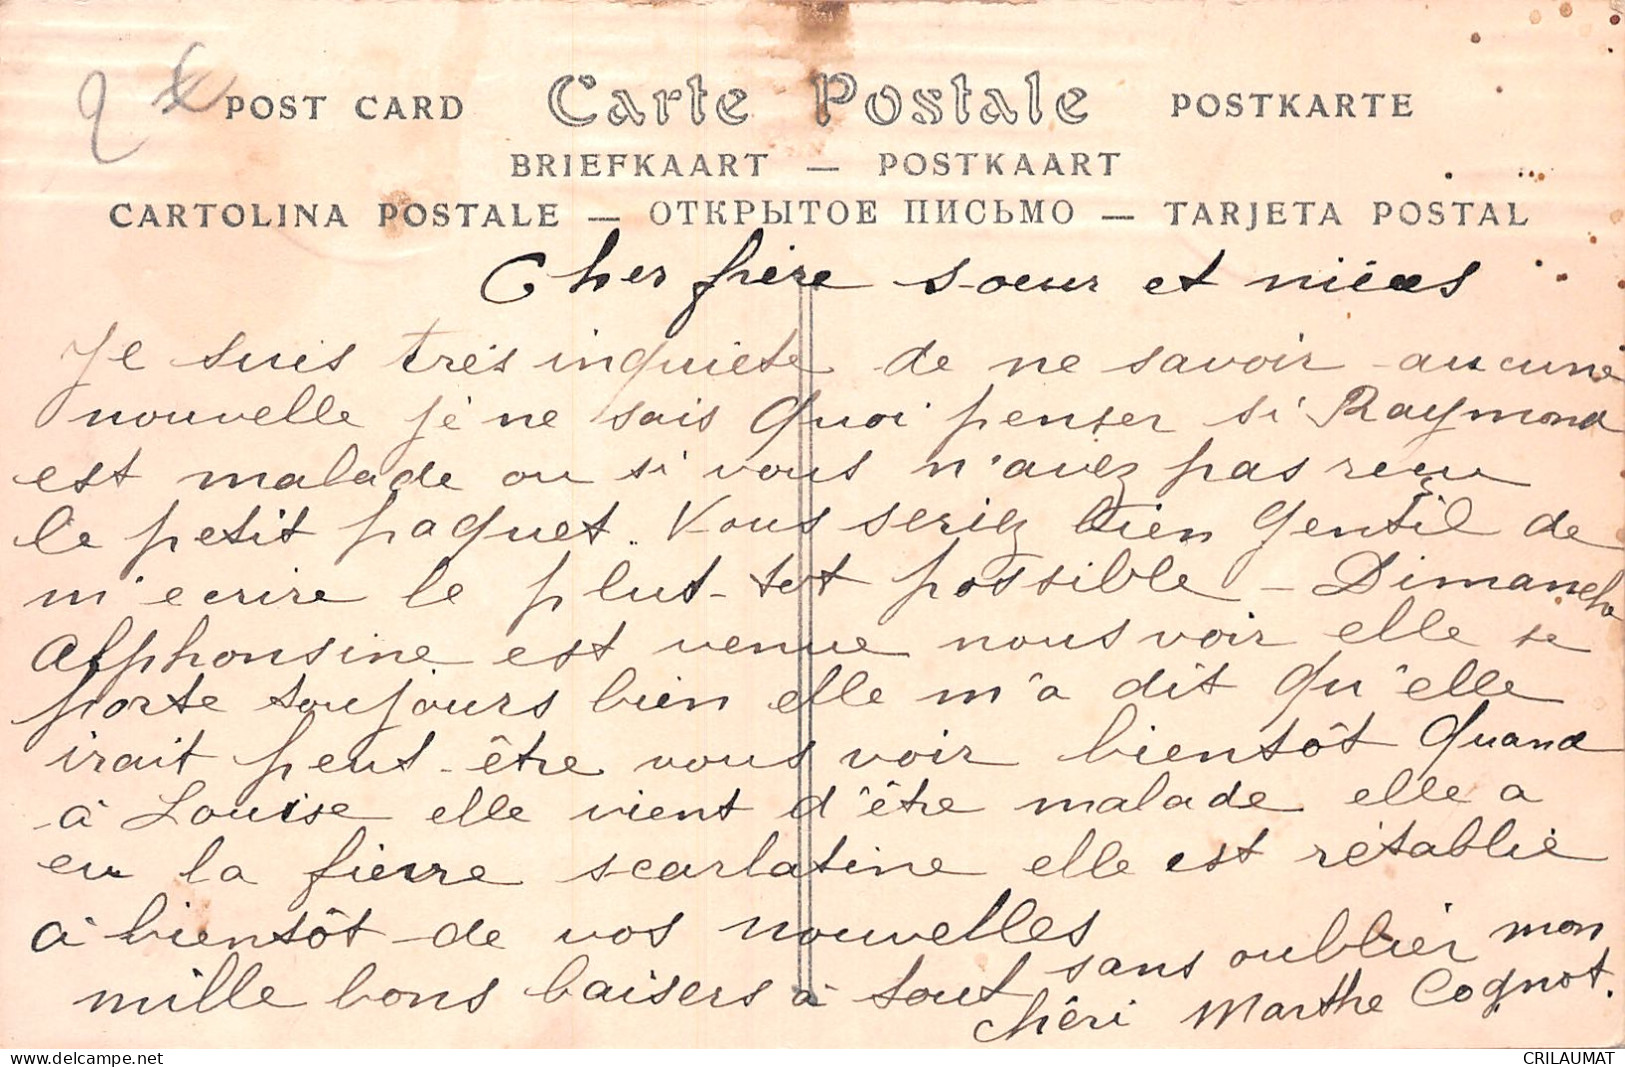 POST CARD Carte Postale POSTKARTE
BRIEFKAART — POSTKAART
CARTOLINA POSTALE — ОТКРЫТОЕ ПИСЬМО — TARJETA POSTAL
Cher frère soeur et nièces
Je suis très inquiete de ne savoir aucune
nouvelle je ne sais quoi penser si Raymond
est malade ou si vous n'avez pas reçu
le petit paquet. Vous seriez bien gentil de
m'ecrire le plus-tot possible - Dimanche
Alphonsine est venue nous voir elle se
porte toujours bien elle m'a dit qu'elle
irait peut-être vous voir bientôt quand
à Louise elle vient d'être malade elle a
eu la fievre scarlatine elle est rétablie
à bientôt de vos nouvelles
mille bons baisers à tout sans oublier mon
chéri Marthe Cognot.
CRILAUMAT